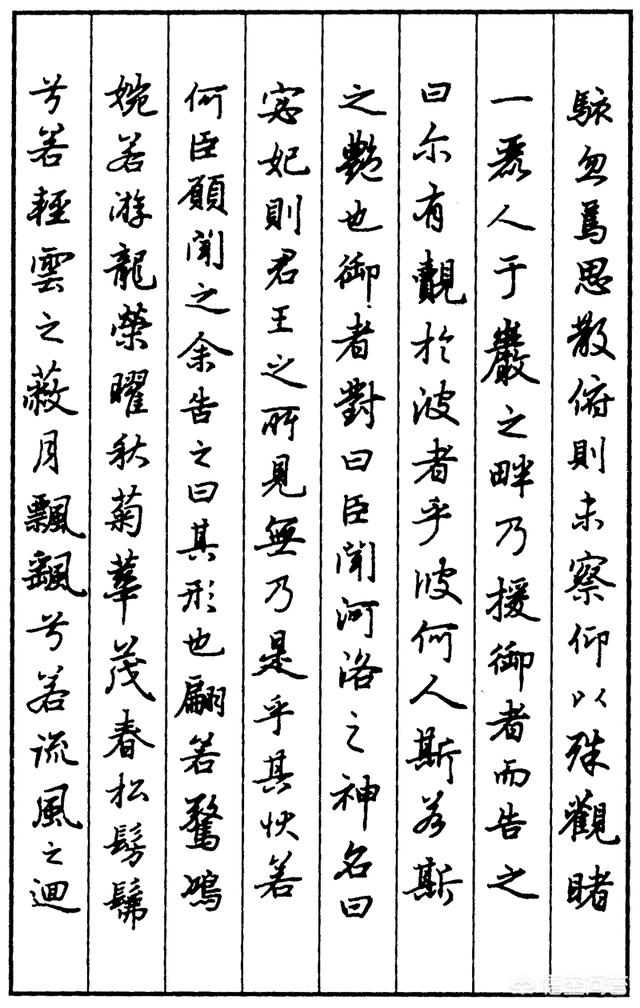 駭忽焉思散俯則未察仰以殊觀睹
一麗人于巖之畔乃援御者而告之
曰尔有覿於波者乎波何人斯若斯
之艷也御者對曰臣聞河洛之神名曰
宓妃則君王之所見無乃是乎其狀若
何臣願聞之余告之曰其形也翩若驚鴻
婉若游龍榮曜秋菊華茂春松髣髴
兮若輕雲之蔽月飄飖兮若流風之迴
悟空问答